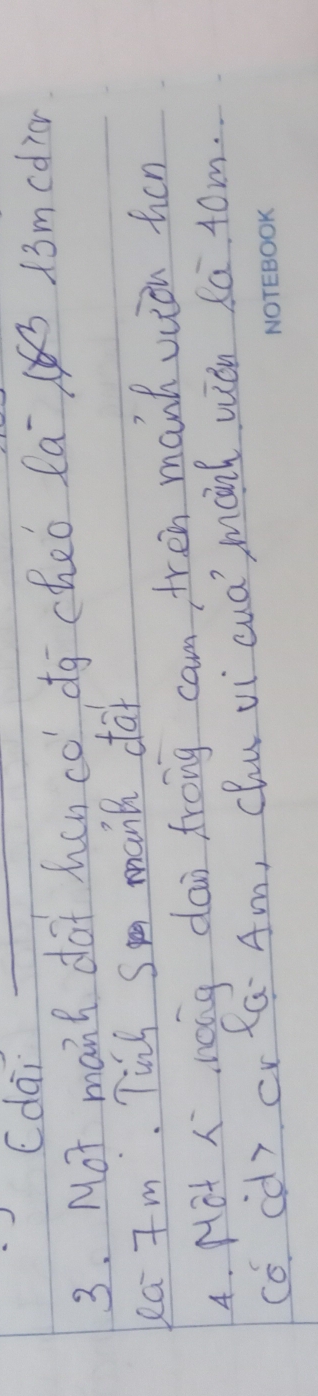 Cdài
3. Một mảnh đất hcn có độ chéo là 13m cd > cr
là 7m. Tính S mảnh đất
4. Một < nông dân trồng cam trên mảnh vườn hcn
Có cd > cr là 4m, chu vi cuả mảnh vườn là 40m.
NOTEBOOK